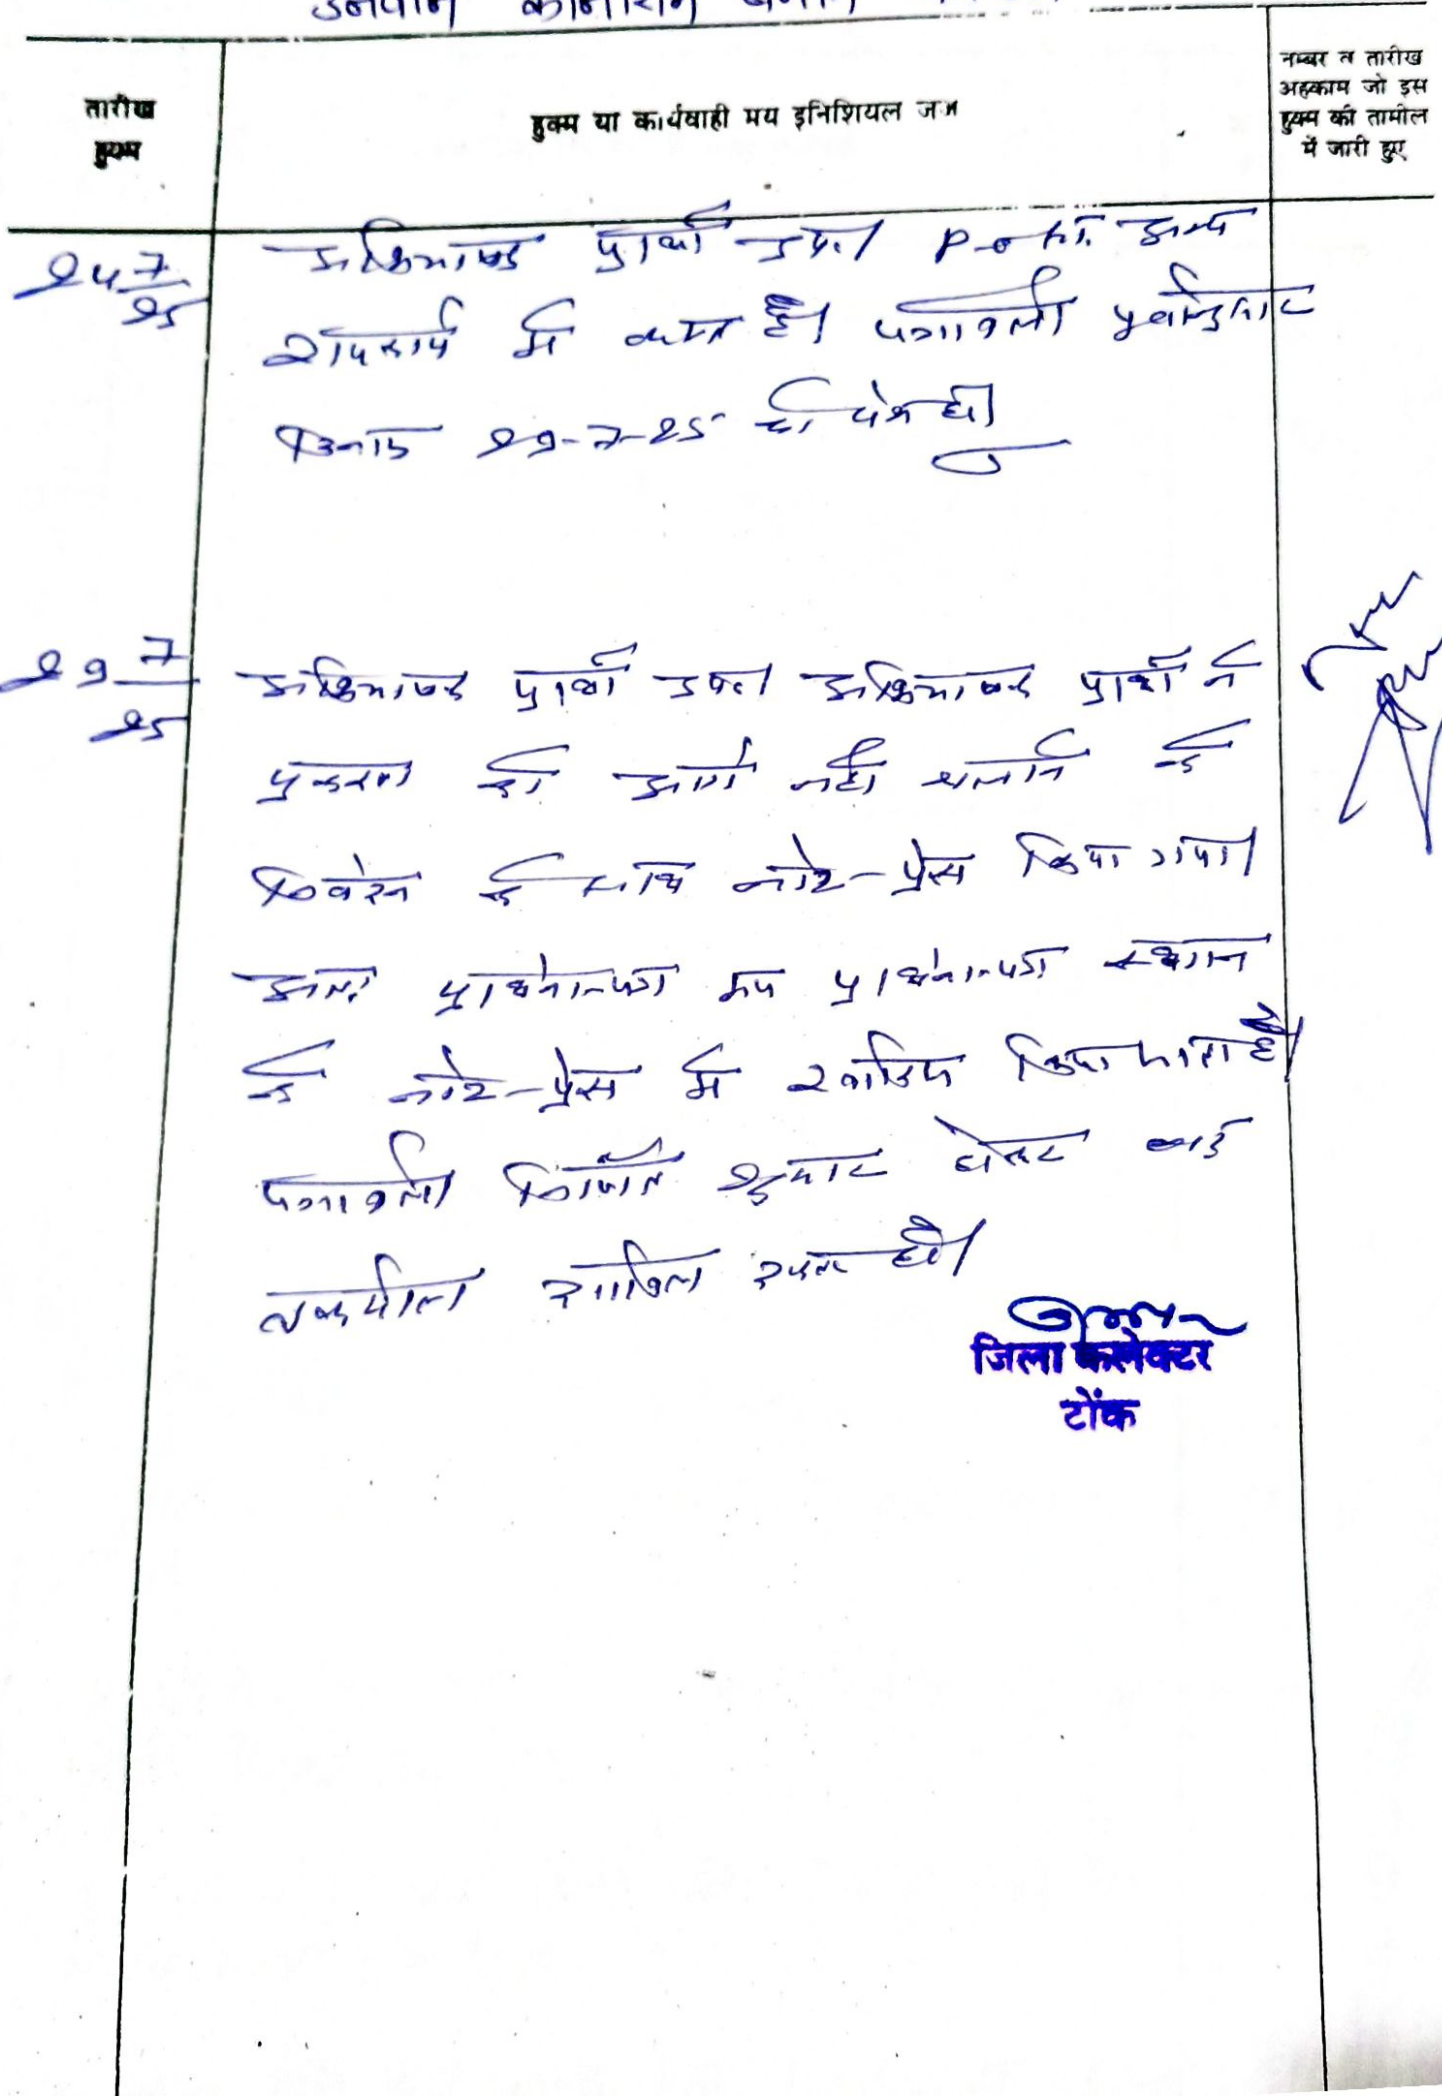 तारीख
हुक्म
हुक्म या कार्यवाही मय इनिशियल जज
नम्बर व तारीख
अहकाम जो इस
हुक्म की तामील
में जारी हुए
24 7/25
अभिभाषक प्रार्थी उप०। P.O सा. अन्य
राजकार्य में व्यस्त है। पत्रावली पूर्वानुसार
दिनांक 29-7-25 को पेश हो।
29 7/25
अभिभाषक प्रार्थी उप०। अभिभाषक प्रार्थी ने
प्रकरण को आगे नहीं चलाने के
निवेदन के साथ नोट-प्रेस किया गया।
अतः प्रार्थना-पत्र मय प्रार्थना-पत्र स्थगन
के नोट-प्रेस में खारिज किया जाता है।
पत्रावली निर्णित शुमार होकर बाद
तकमील दाखिल दफ्तर हो।
जिला कलेक्टर
टोंक